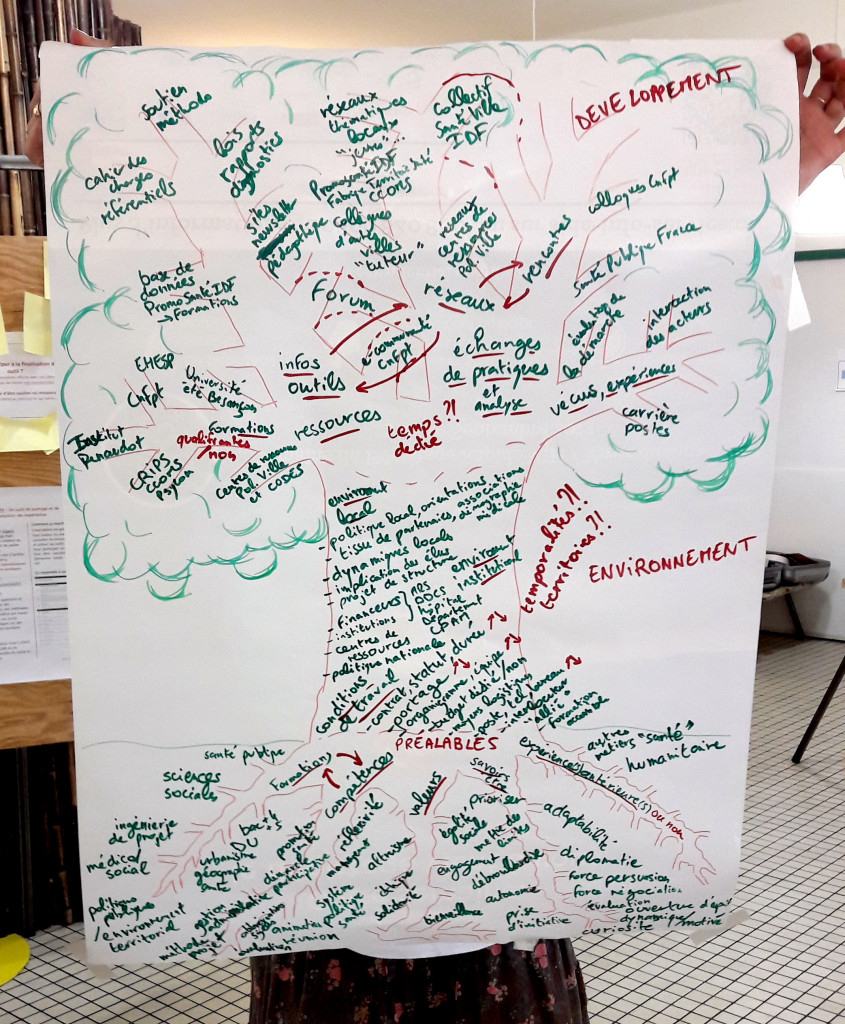 DEVELOPPEMENT
soutien
méthodo
cahier des
charges
référentiels
lois
rapports
diagnostics
sites
newsletter
pédagothèque
réseaux
thématiques
locaux
"jeunes"
PromosantéIDF
Fabrique Territoire Santé
CCOMS
collègues
d'autres
villes
"tuteur"
collectif
Santé Ville
IDF
réseaux
centres de
ressource
Pol Ville
rencontres
colloques Cnfpt
Santé Publique France
évaluation de
la démarche
interaction
des acteurs
base de
données
PromoSantéIDF
→ Formations
forum
réseaux
e-communauté
Cnfpt
infos
outils
échanges
de pratiques
et
analyse
vécus, expériences
carrière
postes
EHESP
Cnfpt
Université
été Besançon
Institut
Renaudot
formations
qualifiantes
/non
CRIPS
CCOMS
Psycom
ressources
Centre de ressources
Pol. Ville
et CODES
temps?!
dédié
ENVIRONNEMENT
temporalités?!
territoires?!
environmt
local
politique local, orientations
tissu de partenaires, associations
démographie
médicale
dynamiques locales
implication des élus
projet de structure
environmt
institutionnel
- financeurs
institutions
ARS
DDCS
hôpital
Département
CPAM
- centres de
ressources
- politique nationale
conditions
de travail
contrat, statut, durée
portage
organigramme, équipe
budget dédié / non
moyens logistiques
poste, tel, bureau
interlocuteur
"allié"
formation
continue
PRÉALABLES
santé publique
sciences
sociales
ingénierie
de projet
médical
social
politiques
publiques
/environnement
territorial
formations
compétences
urbanisme
géographie
santé
promotion
santé
démarche
participative
gestion
administrative
méthodo
projet
évaluation
animation
réunion
système
politique
santé
réflexivité
management
valeurs
altruisme
éthique
solidarité
égalité
sociale
engagement
bienveillance
savoirs
être
prioriser
mettre des
limites
débrouillardise
autonomie
prise
d'initiative
expérience(s) antérieure(s) ou non
autres
métiers "santé"
humanitaire
adaptabilité
diplomatie
force persuasion
force négociation
évaluation
ouverture d'esprit
dynamique/motivé
curiosité